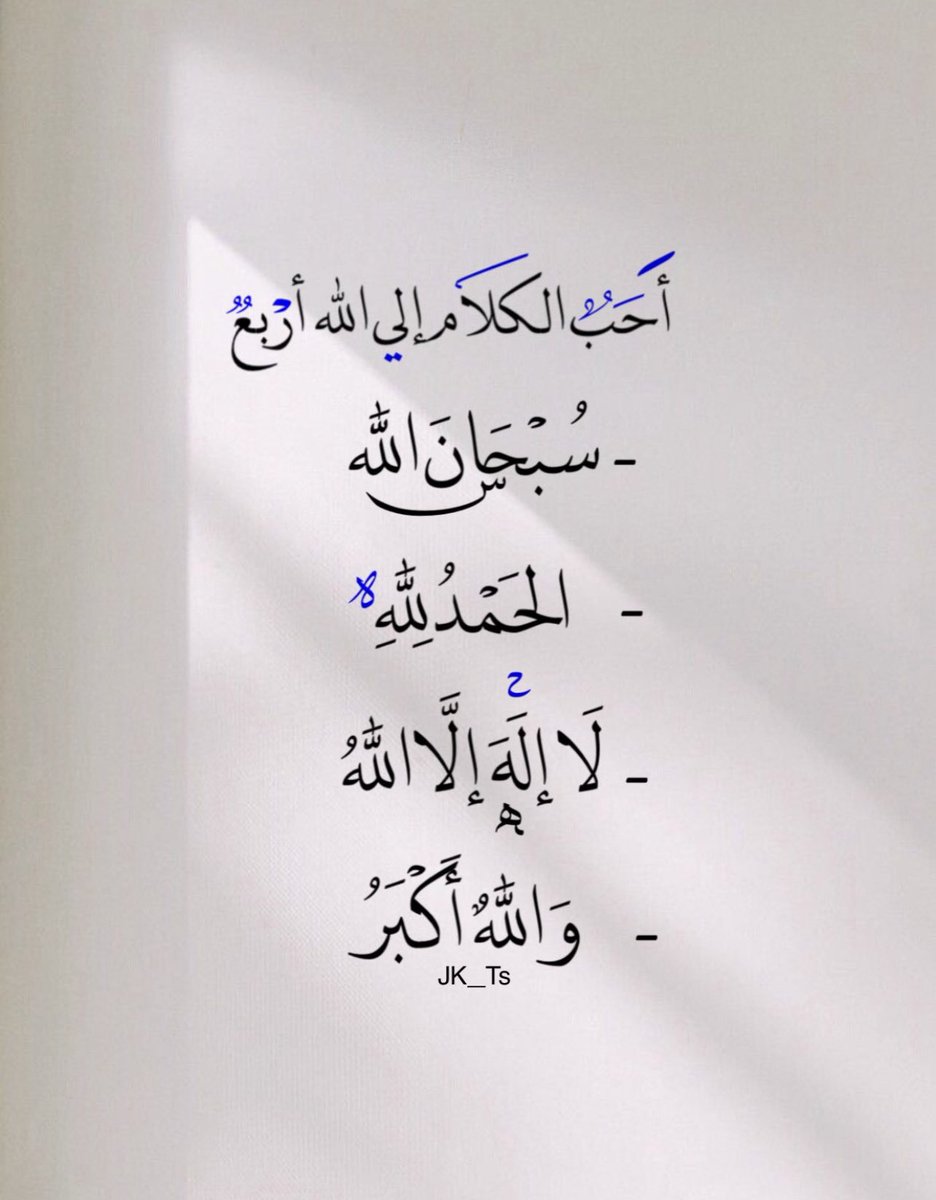 أَحَبُّ الكلَام إلي الله أرْبعٌ
- سُبْحَانَ الله
- الحَمْدُ لِلَّهِ
- لَا إِلَهَ إِلَّا اللَّهُ
- وَاللَّهُ أَكْبَرُ
JK_Ts